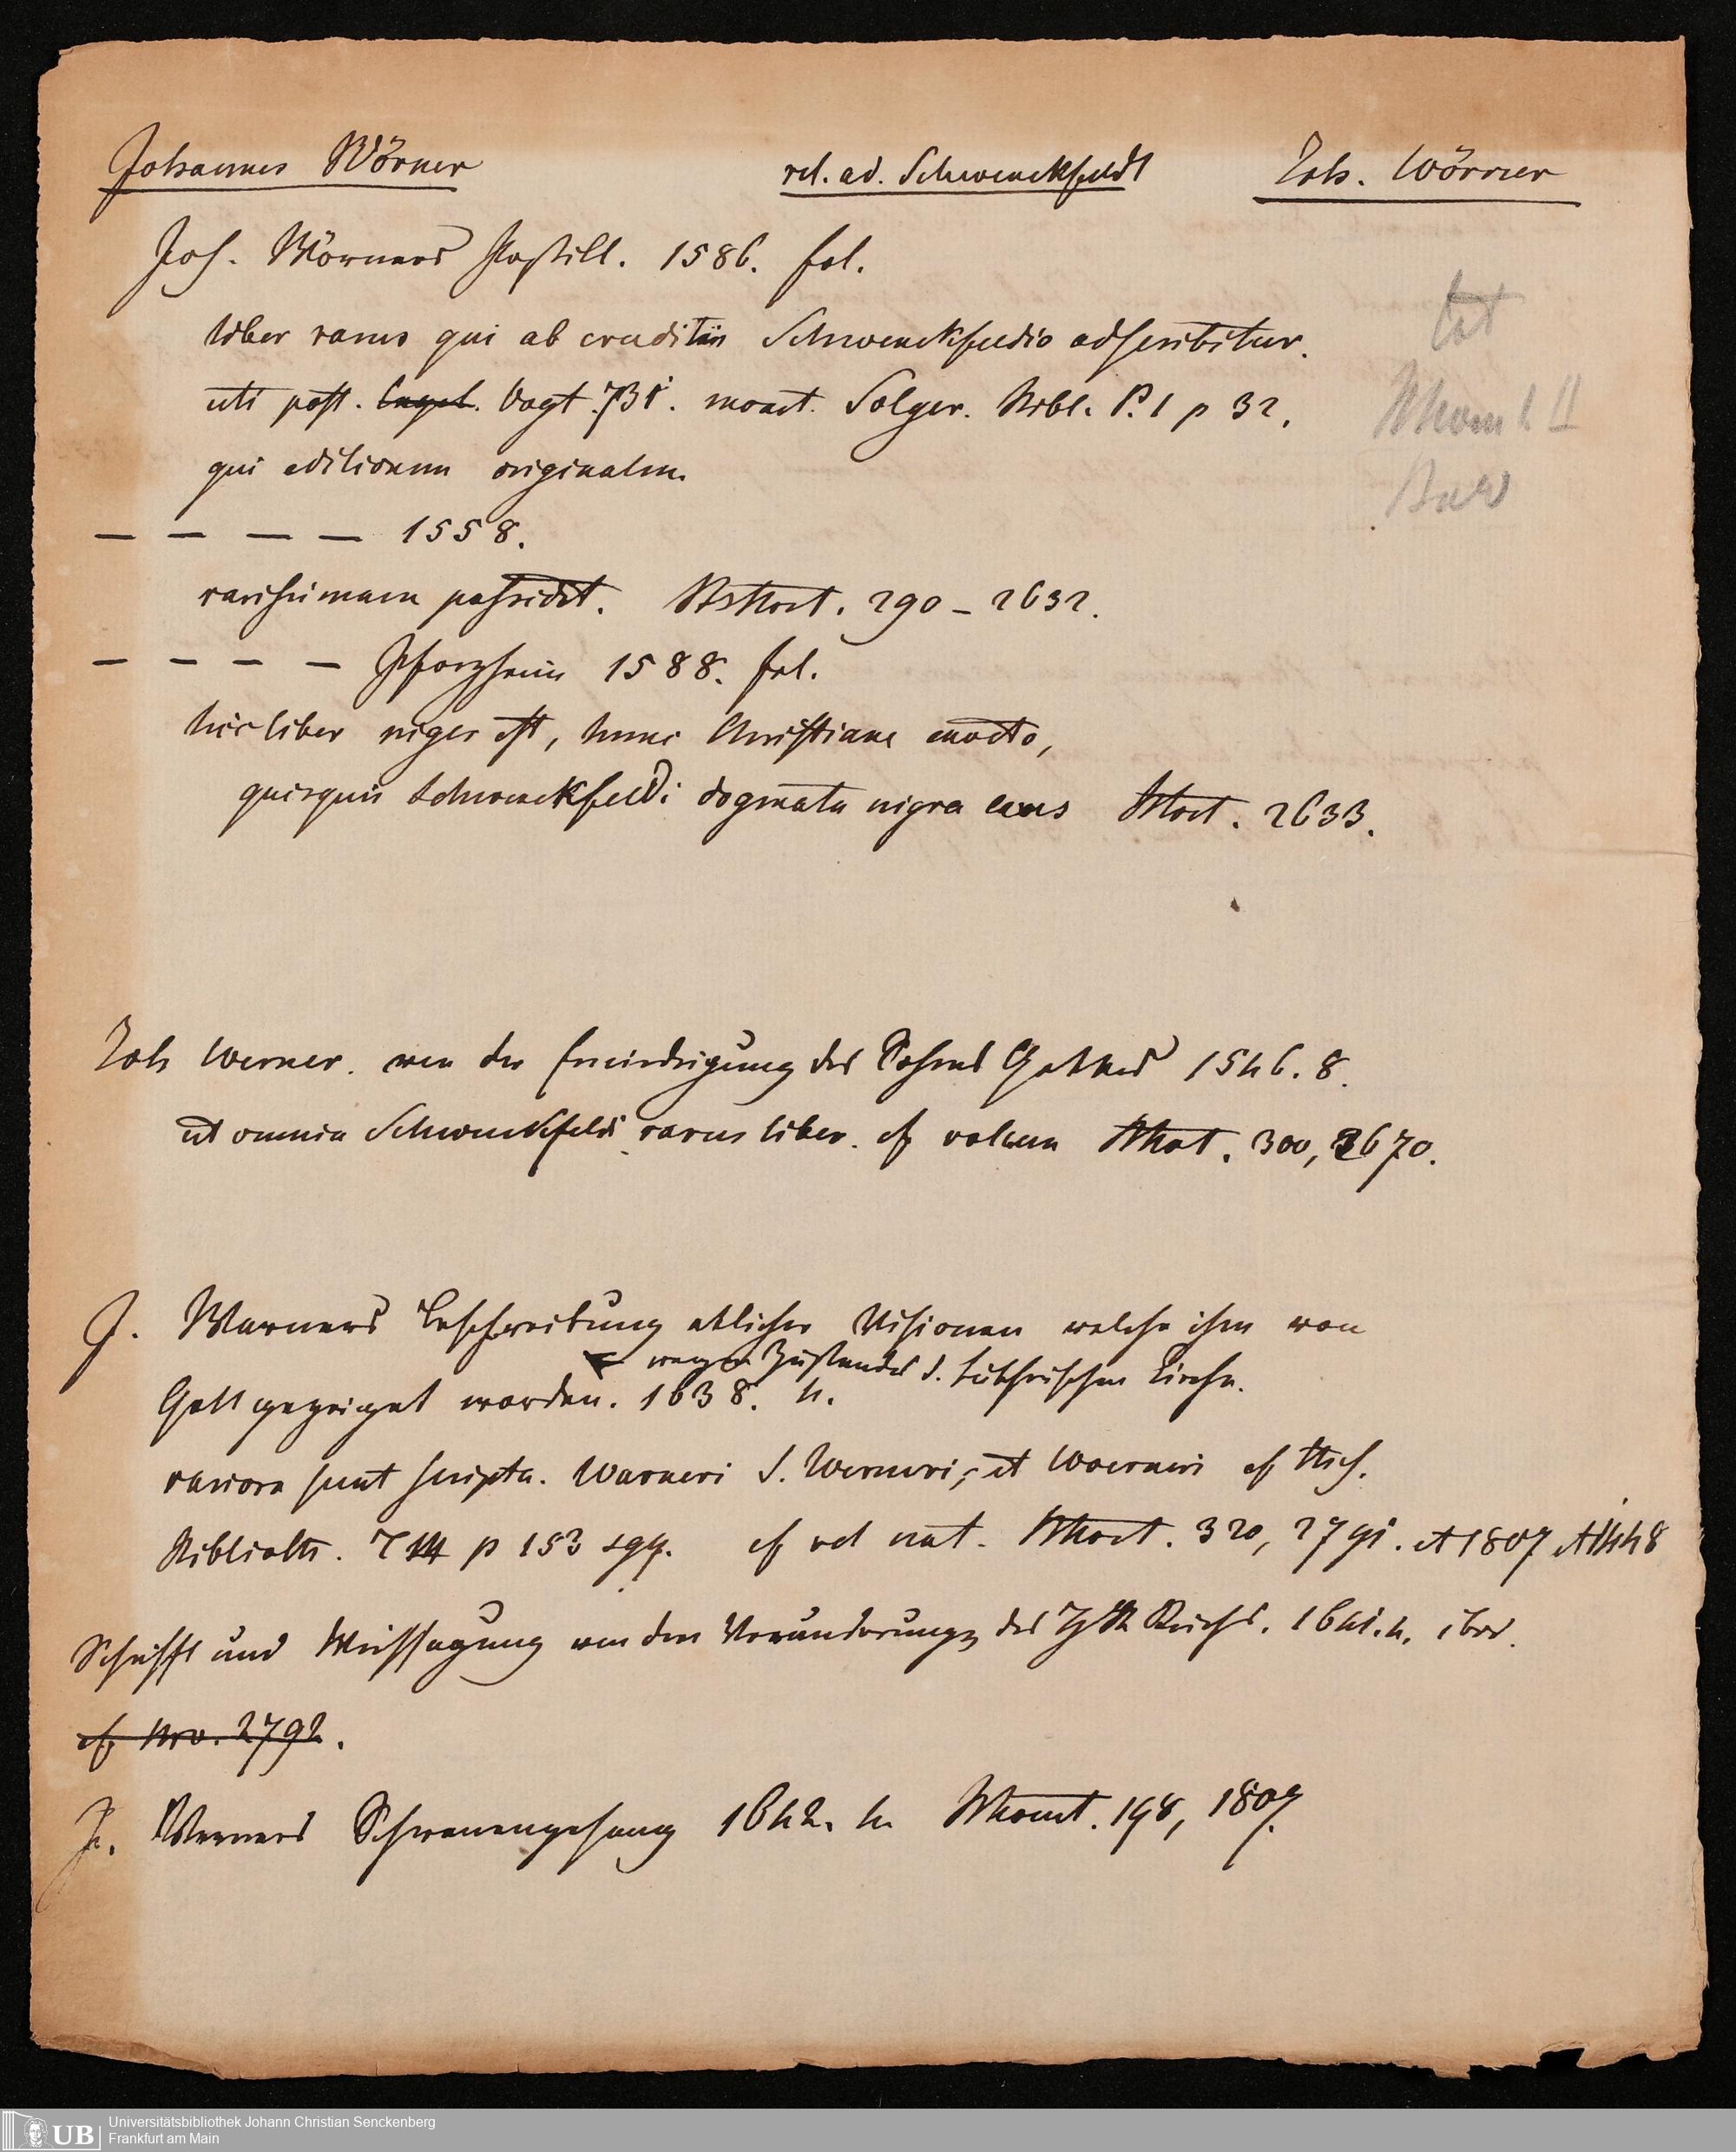 Johannes Wörner rel. ad. Schwenckfeldt Joh. Wörner
Joh. Wörners Postill. 1586. fol.
liber rarus qui ab eruditiis Schwenckfeldio adscribitur.
uti post. Vogt. 731. monet. Solger. Bibl. P. 1 p 32.
qui editionem originalem
— — — — 1558.
rarissimam possidet. 290 – 2632.
— — — — Pforzheim 1588. fol.
hic liber niger est, hunc Christiane
quisquis Schwenckfeldi dogmata nigra 2633.
Joh Werner. von der Erniedrigung des Sohnes Gottes 1546. 8.
ut omnia Schwenckfeldi rarus liber. cf 300, 2670.
J. Warners Beschreibung etlicher Visionen welche ihm von
wegen Zustandes d. Luthrischen Kirche.
Gott gezeiget worden. 1638. 4.
rariora sunt scripta. Warneri S. Werneri, et Woerneri cf Hist.
Biblioth. p 153 sqq. cf 320, 2791. et 1807 et
Schrifft und Weissagung von den Veränderungen des Reichs. 1641. 4. ibid.
cf Nro. 2792.
J. Werners Schwanengesang 1642. 4 198, 1807
UB Universitätsbibliothek Johann Christian Senckenberg
Frankfurt am Main